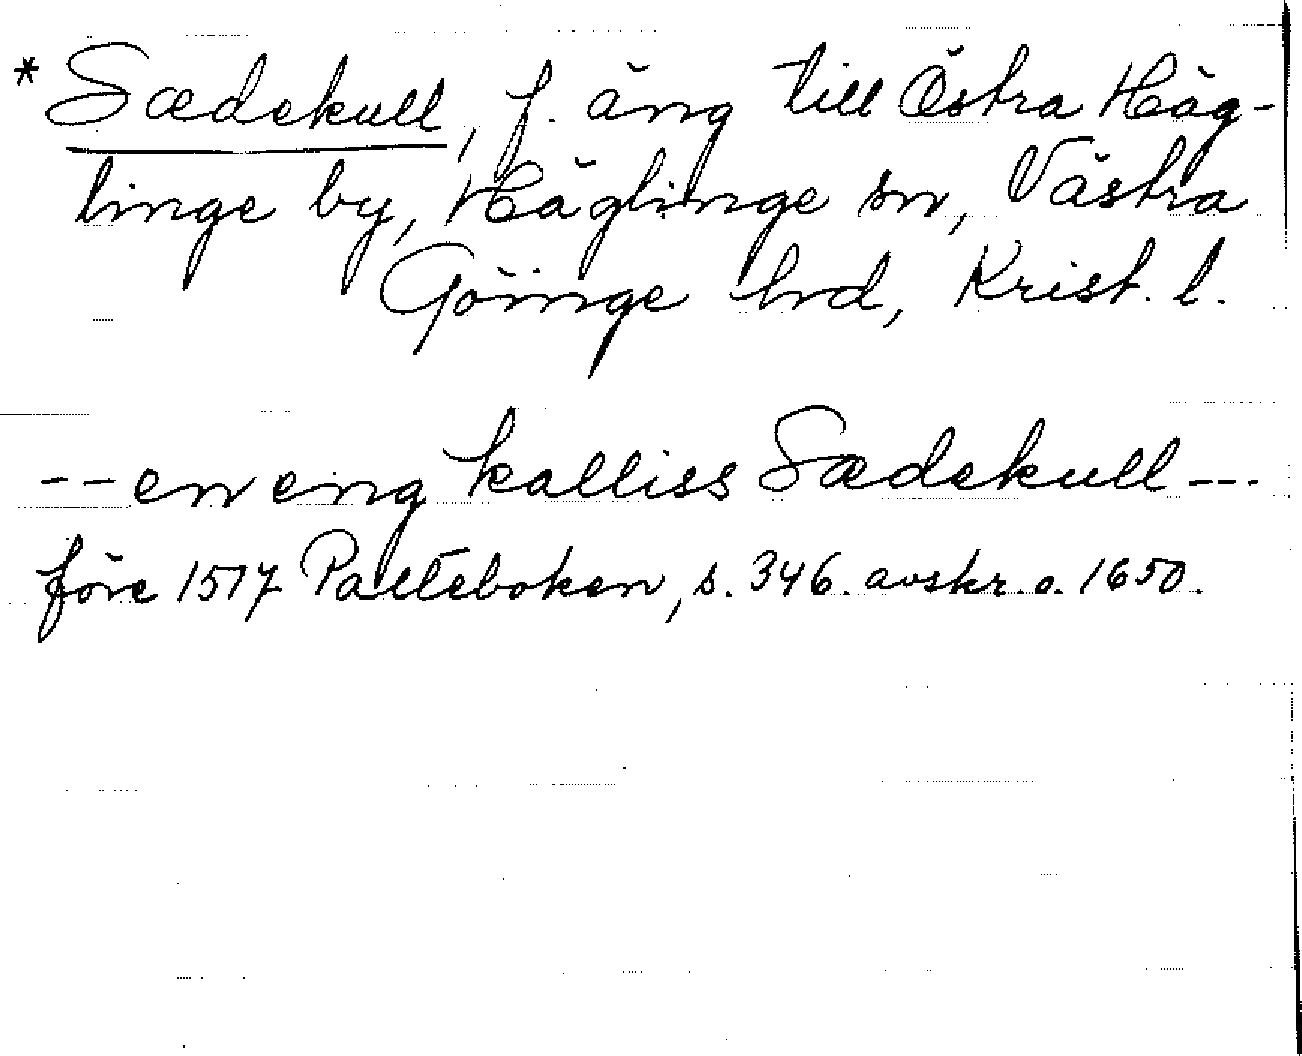 * Sædekull, f. äng till Östra Häg-
linge by, Häglinge sn, Västra
Göinge hrd, Krist. l.
-- en eng kalliss Sædekull ---
före 1517 Palteboken, s. 346. avskr. o. 1650.